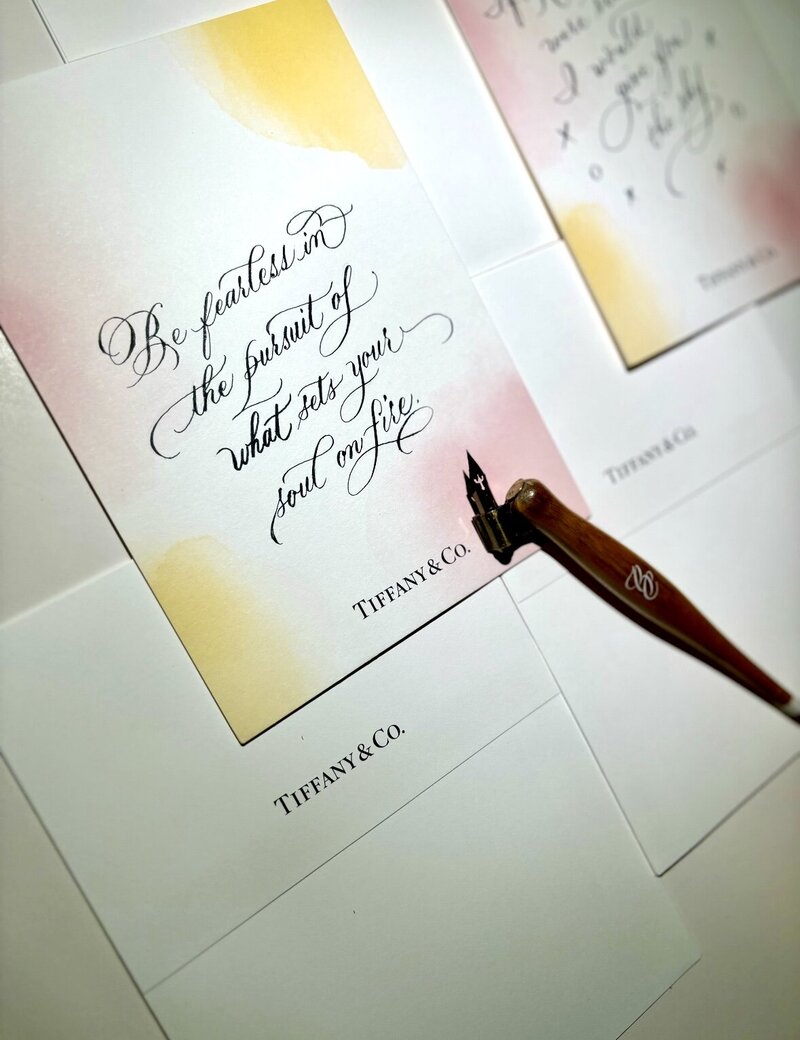 Be fearless in
the pursuit of
what sets your
soul on fire.
TIFFANY & CO.
I would
give you
the sky
x
o
x
x
o
x
TIFFANY & CO.
TIFFANY & CO.
TIFFANY & CO.